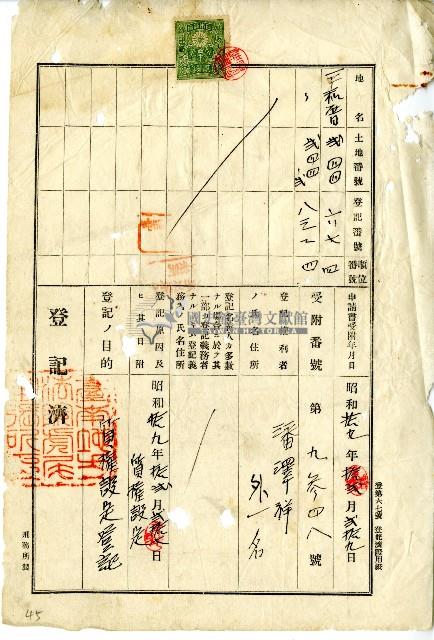 地名
土地番號
登記番號
順位番號
弍四四
六六七
四
弍四四ノ弍
八三二
四
申請書受附年月日
昭和拾九年拾弍月弍拾九日
受附番號
第九參四八號
登記權利者ノ氏名住所
潘澤祥
外一名
登記名義人カ多數
ナル場合ニ於テ其
一部カ登記義務者
ナルトキ登記義
務者ノ氏名住所
登記原因及
ヒ其日附
昭和拾九年拾弍月弍拾日
質權設定
登記ノ目的
質權設定登記
登記濟
國立臺灣文獻館
登第六七號 登記濟證用紙
刑務所製
45